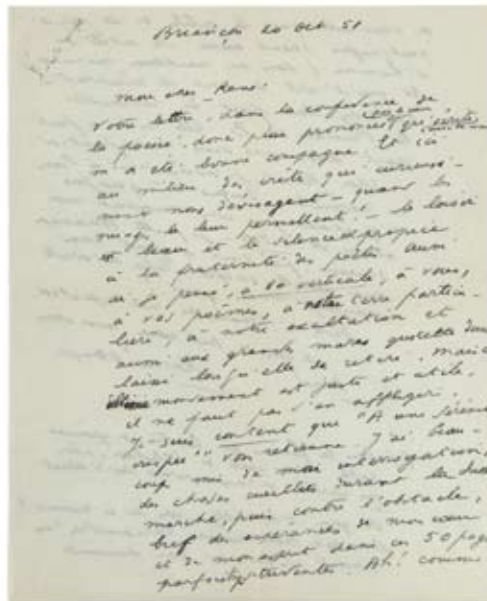 Briançon 20 Oct. 51
mon cher
Votre lettre, dans la confidence de
la poésie, donc peu
m'a été bonne compagne. Et ici
au milieu des crêtes qui
nous nous dévisagent – quand les
nuages le leur permettent! – le loisir
est beau et le silence propice
à la fraternité des poètes. Aussi
ai-je pensé, à la verticale, à vous,
à vos poèmes, à notre terre particu-
lière, à notre exaltation et
aussi aux grandes mares
laisse lorsqu'elle se retire. Mais
mouvement est juste et utile.
il ne faut pas s'en affliger.
Je suis content que "A une sérénité
crispée" vous retienne. J'ai beau-
coup mis de mon interrogation,
des choses cueillies durant la
marche, puis contre l'obstacle,
bref des espérances de mon cœur
et de mon esprit dans ces 50 pages
Ah! comme